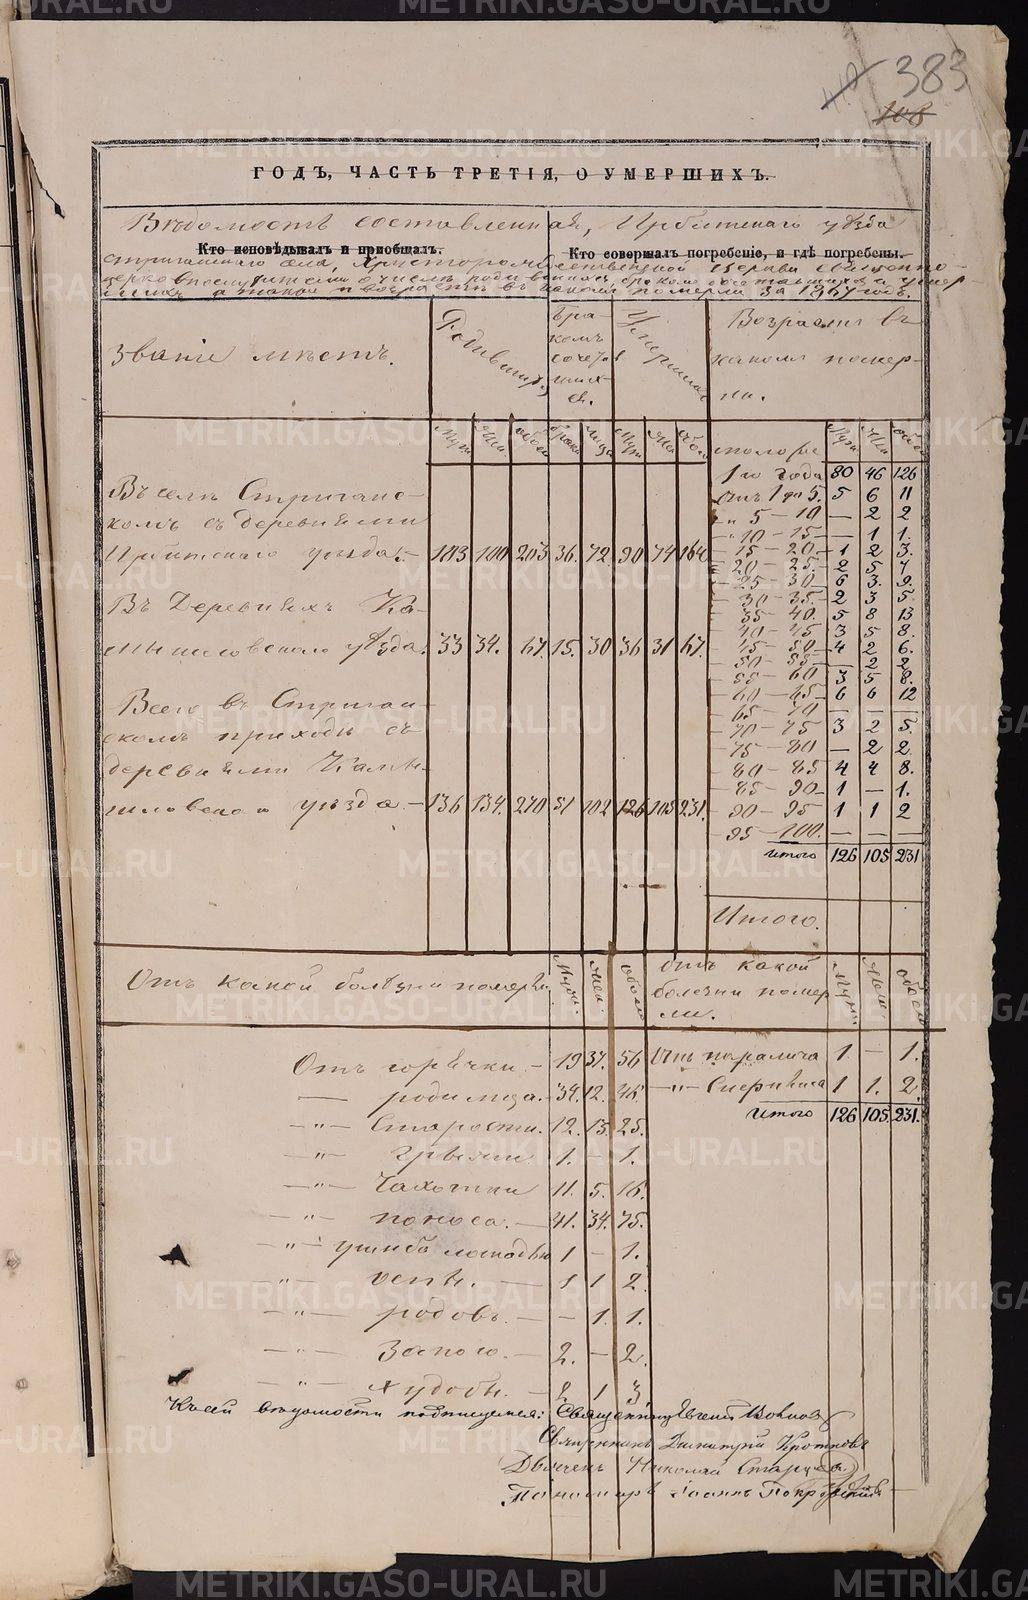 383
108
ГОДЪ, ЧАСТЬ ТРЕТІЯ, О УМЕРШИХЪ.
Вѣдомость составленная, Ирбитскаго уѣзда
Кто исповѣдывалъ и пріобщалъ. Кто совершалъ погребеніе, и гдѣ погребены.
Стриганскаго села, Христорождественской Церкви священно-
церковнослужителями о числѣ родившихся, бракомъ сочетавшихся и умер-
шихъ, а также и возрастѣ въ какомъ померли за 1867 годъ.
Званіе мѣстъ. Родившихся Бракомъ сочетавшихся. Умершихъ Возрастъ въ какомъ померли.
Муж Жен обоего браки лица Муж Жен обоего моложе Муж Жен обоего
1го года 80 46 126
отъ 1 до 5. 5 6 11
" 5 – 10 — 2 2
" 10 – 15 — 1 1.
15 – 20. 1 2 3.
20 – 25. 2 5 7
25 – 30 6 3. 9.
30 – 35. 2 3 5.
35 – 40. 5 8 13
40 – 45 3 5 8.
45 – 50 4 2 6.
50 – 55 — 2 2
55 – 60 3 5 8.
60 – 65 6 6 12
65 – 70 — — —
70 – 75 3 2 5.
75 – 80 — 2 2.
80 – 85 4 4 8.
85 – 90 1 — 1.
90 – 95 1 1 2
95 – 100. — — —
итого 126 105 231
Итого.
Въ селѣ Стриганс-
комъ съ деревнями
Ирбитскаго уѣзда 103 100 203 36. 72. 90 74 164
Въ Деревняхъ Ка-
мышловскаго уѣзда. 33 34. 67. 15. 30 36 31 67.
Всего въ Стриган-
скомъ приходѣ съ
деревнями Камы-
шловскаго уѣзда – 136 134. 270 51 102 126 105 231.
Отъ какой болѣзни померли Муж. Жен. обоего отъ какой болѣзни померли. Муж Жен обоего
Отъ горячки – 19 37. 56 Отъ паралича 1 — 1.
— родимца. 34. 12. 46 —"— Скерлѣва 1 1. 2.
—"— Старости. 12. 13. 25. итого 126 105 231.
—"— грыжи 1. — 1.
—"— Чахотки 11. 5. 16.
—"— поноса. — 41. 34. 75.
—"— ушиба лошадью 1 — 1.
—"— оспы. 1 1 2.
—"— родовъ. — 1. 1.
—"— Запою. — 2. — 2.
—"— худобы. — 2 1 3
Къ сей вѣдомости подписуемся: Священникъ Евгеній Вовновъ
Священникъ Димитрій Кротковъ
Діаконъ Николай Старцевъ
Пономарь Іоаннъ Покровскій
METRIKI.GASO-URAL.RU